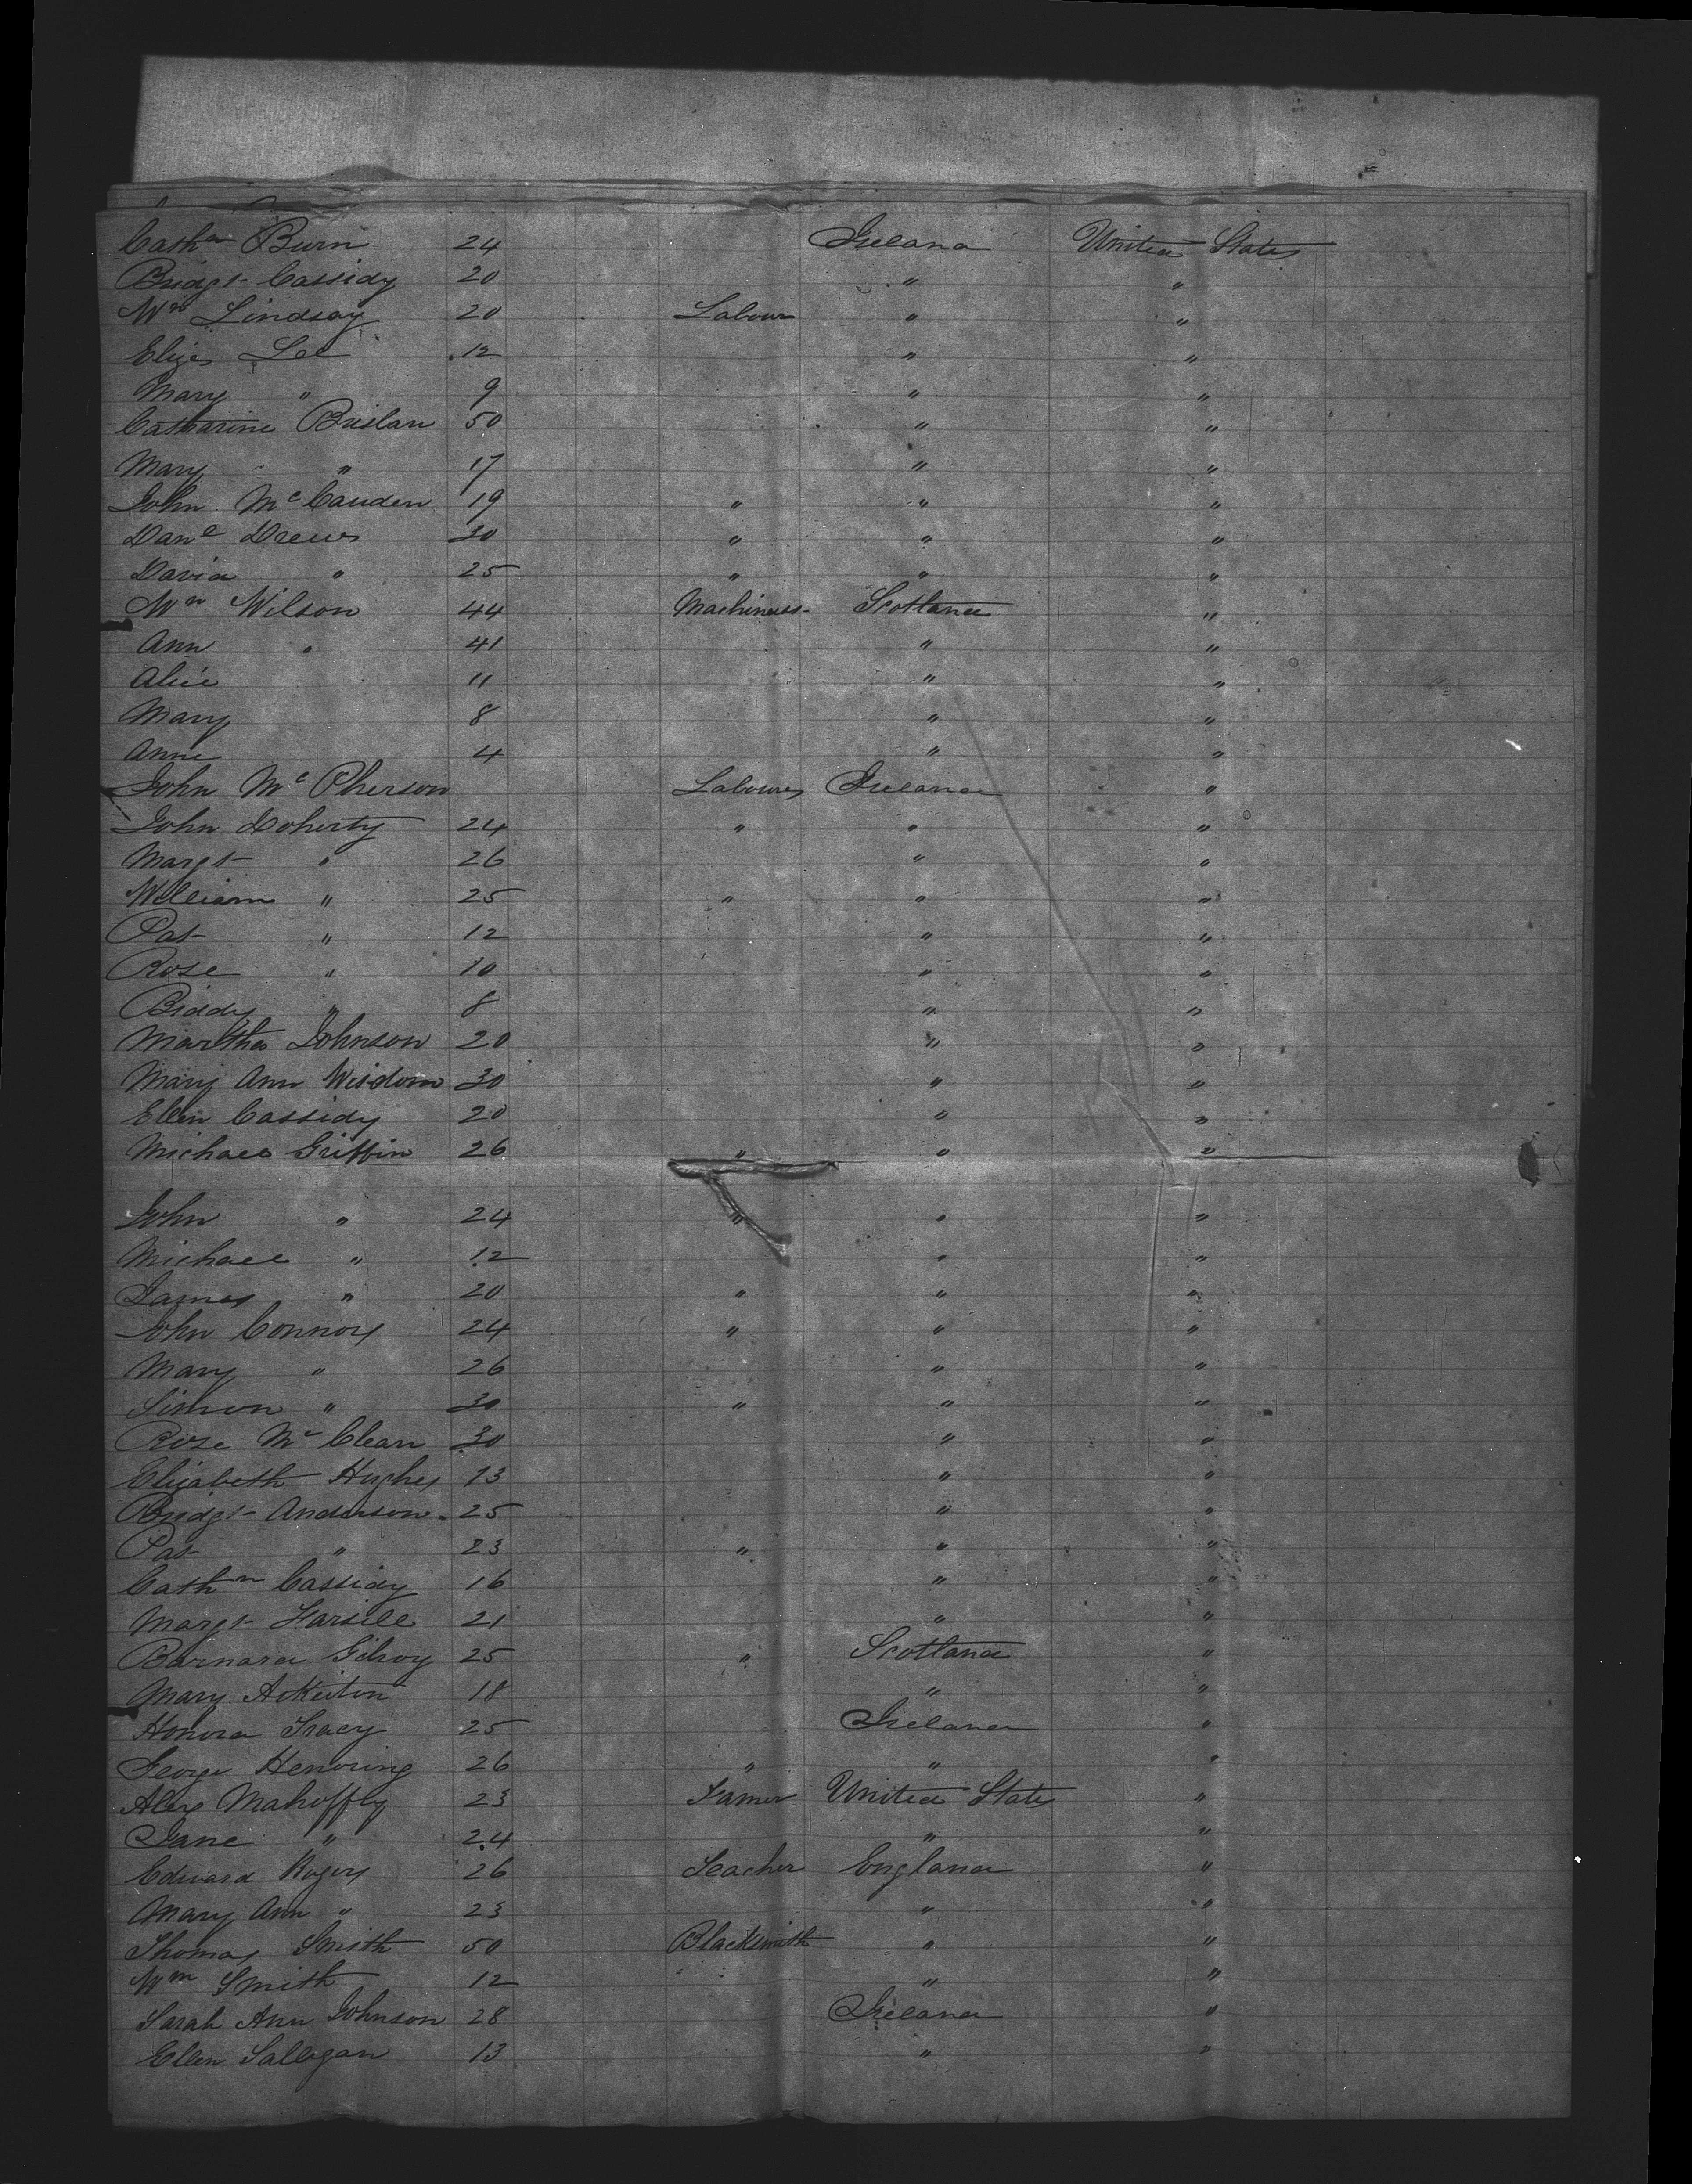 Cathn Burn 24 Ireland United States
Bridgt Cassidy 20 " "
Wm Lindsay 20 Labour " "
Eliza Lee 12 " "
Mary " 9 " "
Catharine Brislan 50 " "
Mary " 17 " "
John McCauden 19 " " "
Danl Drews 30 " " "
David " 25 " " "
Wm Wilson 44 Machinest Scotland "
Ann " 41 " "
Alice 11 " "
Mary 8 " "
Anne 4 " "
John McPherson Labourer Ireland "
John Doherty 24 " " "
Margt " 26 " "
William " 25 " " "
Pat " 12 " "
Rose " 10 " "
Biddy " 8 " "
Martha Johnson 20 " "
Mary Ann Wisdom 30 " "
Ellen Cassidy 20 " "
Michael Griffin 26 " " "
John " 24 " " "
Michael " 12 " "
James " 20 " " "
John Connors 24 " " "
Mary " 26 " "
Simon " 30 " " "
Rose McClean 30 " "
Elizabeth Hughes 13 " "
Bridgt Anderson 25 " "
Pat " 23 " " "
Cathn Cassidy 16 " "
Margt 21 " "
Barnard Gilroy 25 " Scotland "
Mary 18 " "
Honora Tracy 25 Ireland "
George 26 " " "
Alex Mahoffly 23 Farmer United States "
Jane " 24 " "
Edward Rogers 26 Teacher England "
Mary Ann " 23 " "
Thomas Smith 50 Blacksmith " "
Wm Smith 12 " "
Sarah Ann Johnson 28 Ireland "
Ellen Salligan 13 " "